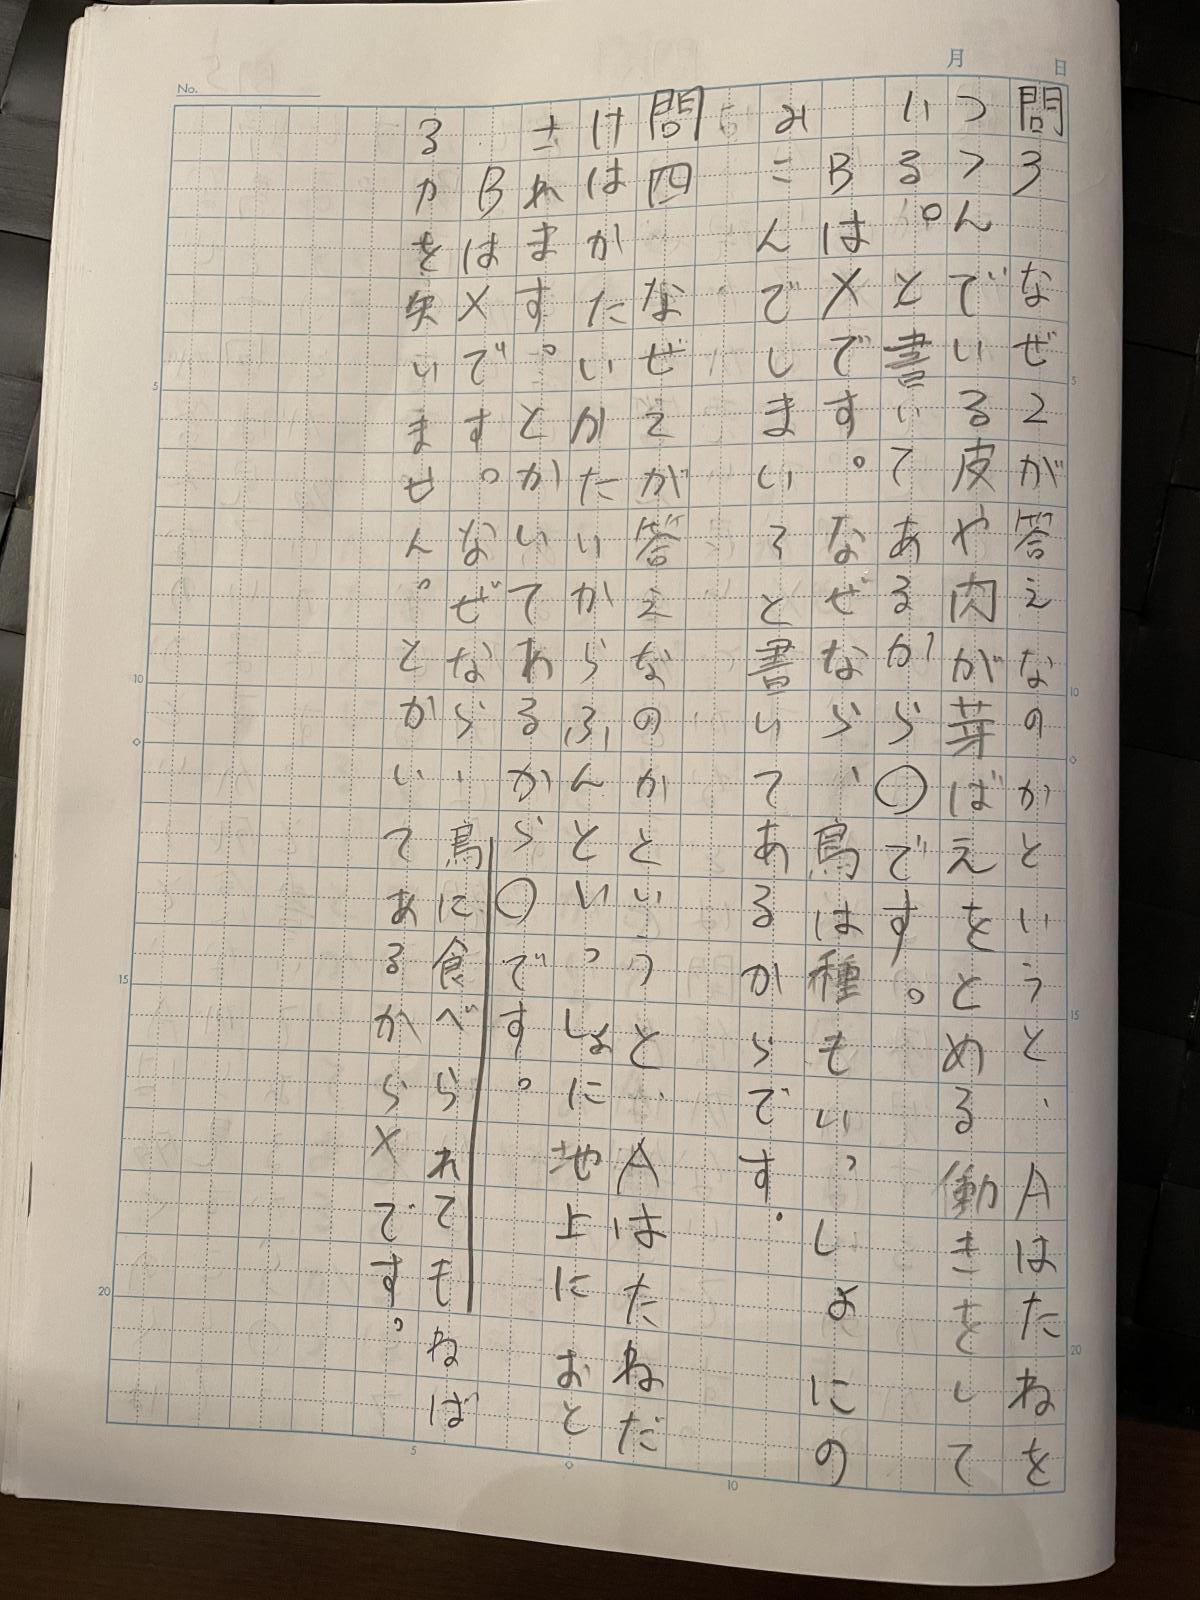 月 日
No.
問3 なぜ2が答えなのかというと、Aはたねを
つつんでいる皮や肉が芽ばえをとめる働きをして
いる。と書いてあるから○です。
Bは×です。なぜなら、鳥は種もいっしょにの
みこんでしまい、と書いてあるからです。
問四 なぜ2が答えなのかというと、Aはたねだ
けはかたいかたいからふんといっしょに地上におと
されます。とかいてわるから○です。
Bは×です。なぜなら、鳥に食べられてもねば
る力を失いません。とかいてあるから×です。
5
10
15
20
5
10
15
20
5
10